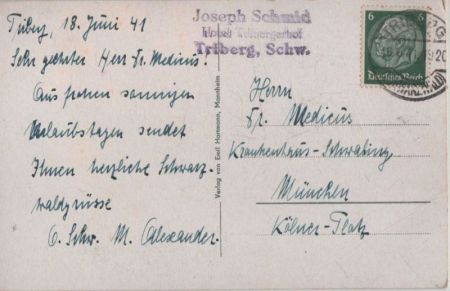 Triberg, 18. Juni 41
Sehr geehrter Herr Dr. Medicus!
Aus frohen sonnigen
Urlaubstagen sendet
Ihnen herzliche Schwarz-
waldgrüsse
O. Schw. M. Alexander.
Verlag von Emil Hartmann, Mannheim
Joseph Schmid
Hotel Tribergerhof
Triberg, Schw.
6 6
Deutsches Reich
Herrn
Dr. Medicus
Krankenhaus-Schwabing
München
Kölner-Platz